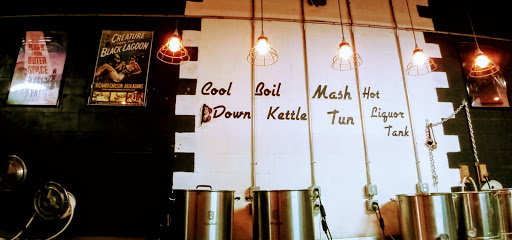 PLAN 9
FROM
OUTER
SPACE
CREATURE
FROM THE
BLACK LAGOON
RICHARD CARLSON · JULIA ADAMS
Cool
Down
Boil
Kettle
Mash
Tun
Hot
Liquor
Tank